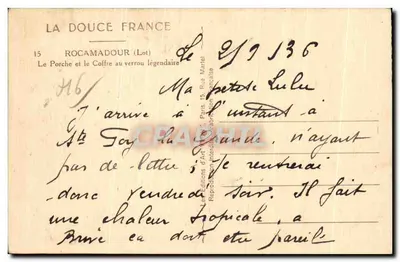 LA DOUCE FRANCE
15 ROCAMADOUR (Lot)
Le Porche et le Coffre au verrou légendaire
Le 2/9/36
Ma petite Lulu
J'arrive à l'instant à
Ste Foy La Grande, n'ayant
pas de lettre ; je rentrerai
donc vendredi soir. Il fait
une chaleur tropicale, a
Brive ça doit etre pareil